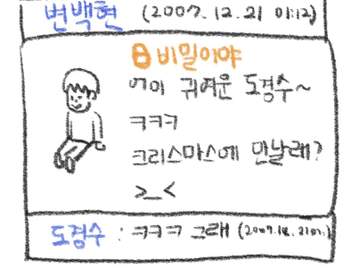 변백현 (2007.12.21 01:12)
비밀이야
어이 귀여운 도경수~
ㅋㅋㅋ
크리스마스에 만날래?
>_<
도경수 : ㅋㅋㅋ 그래